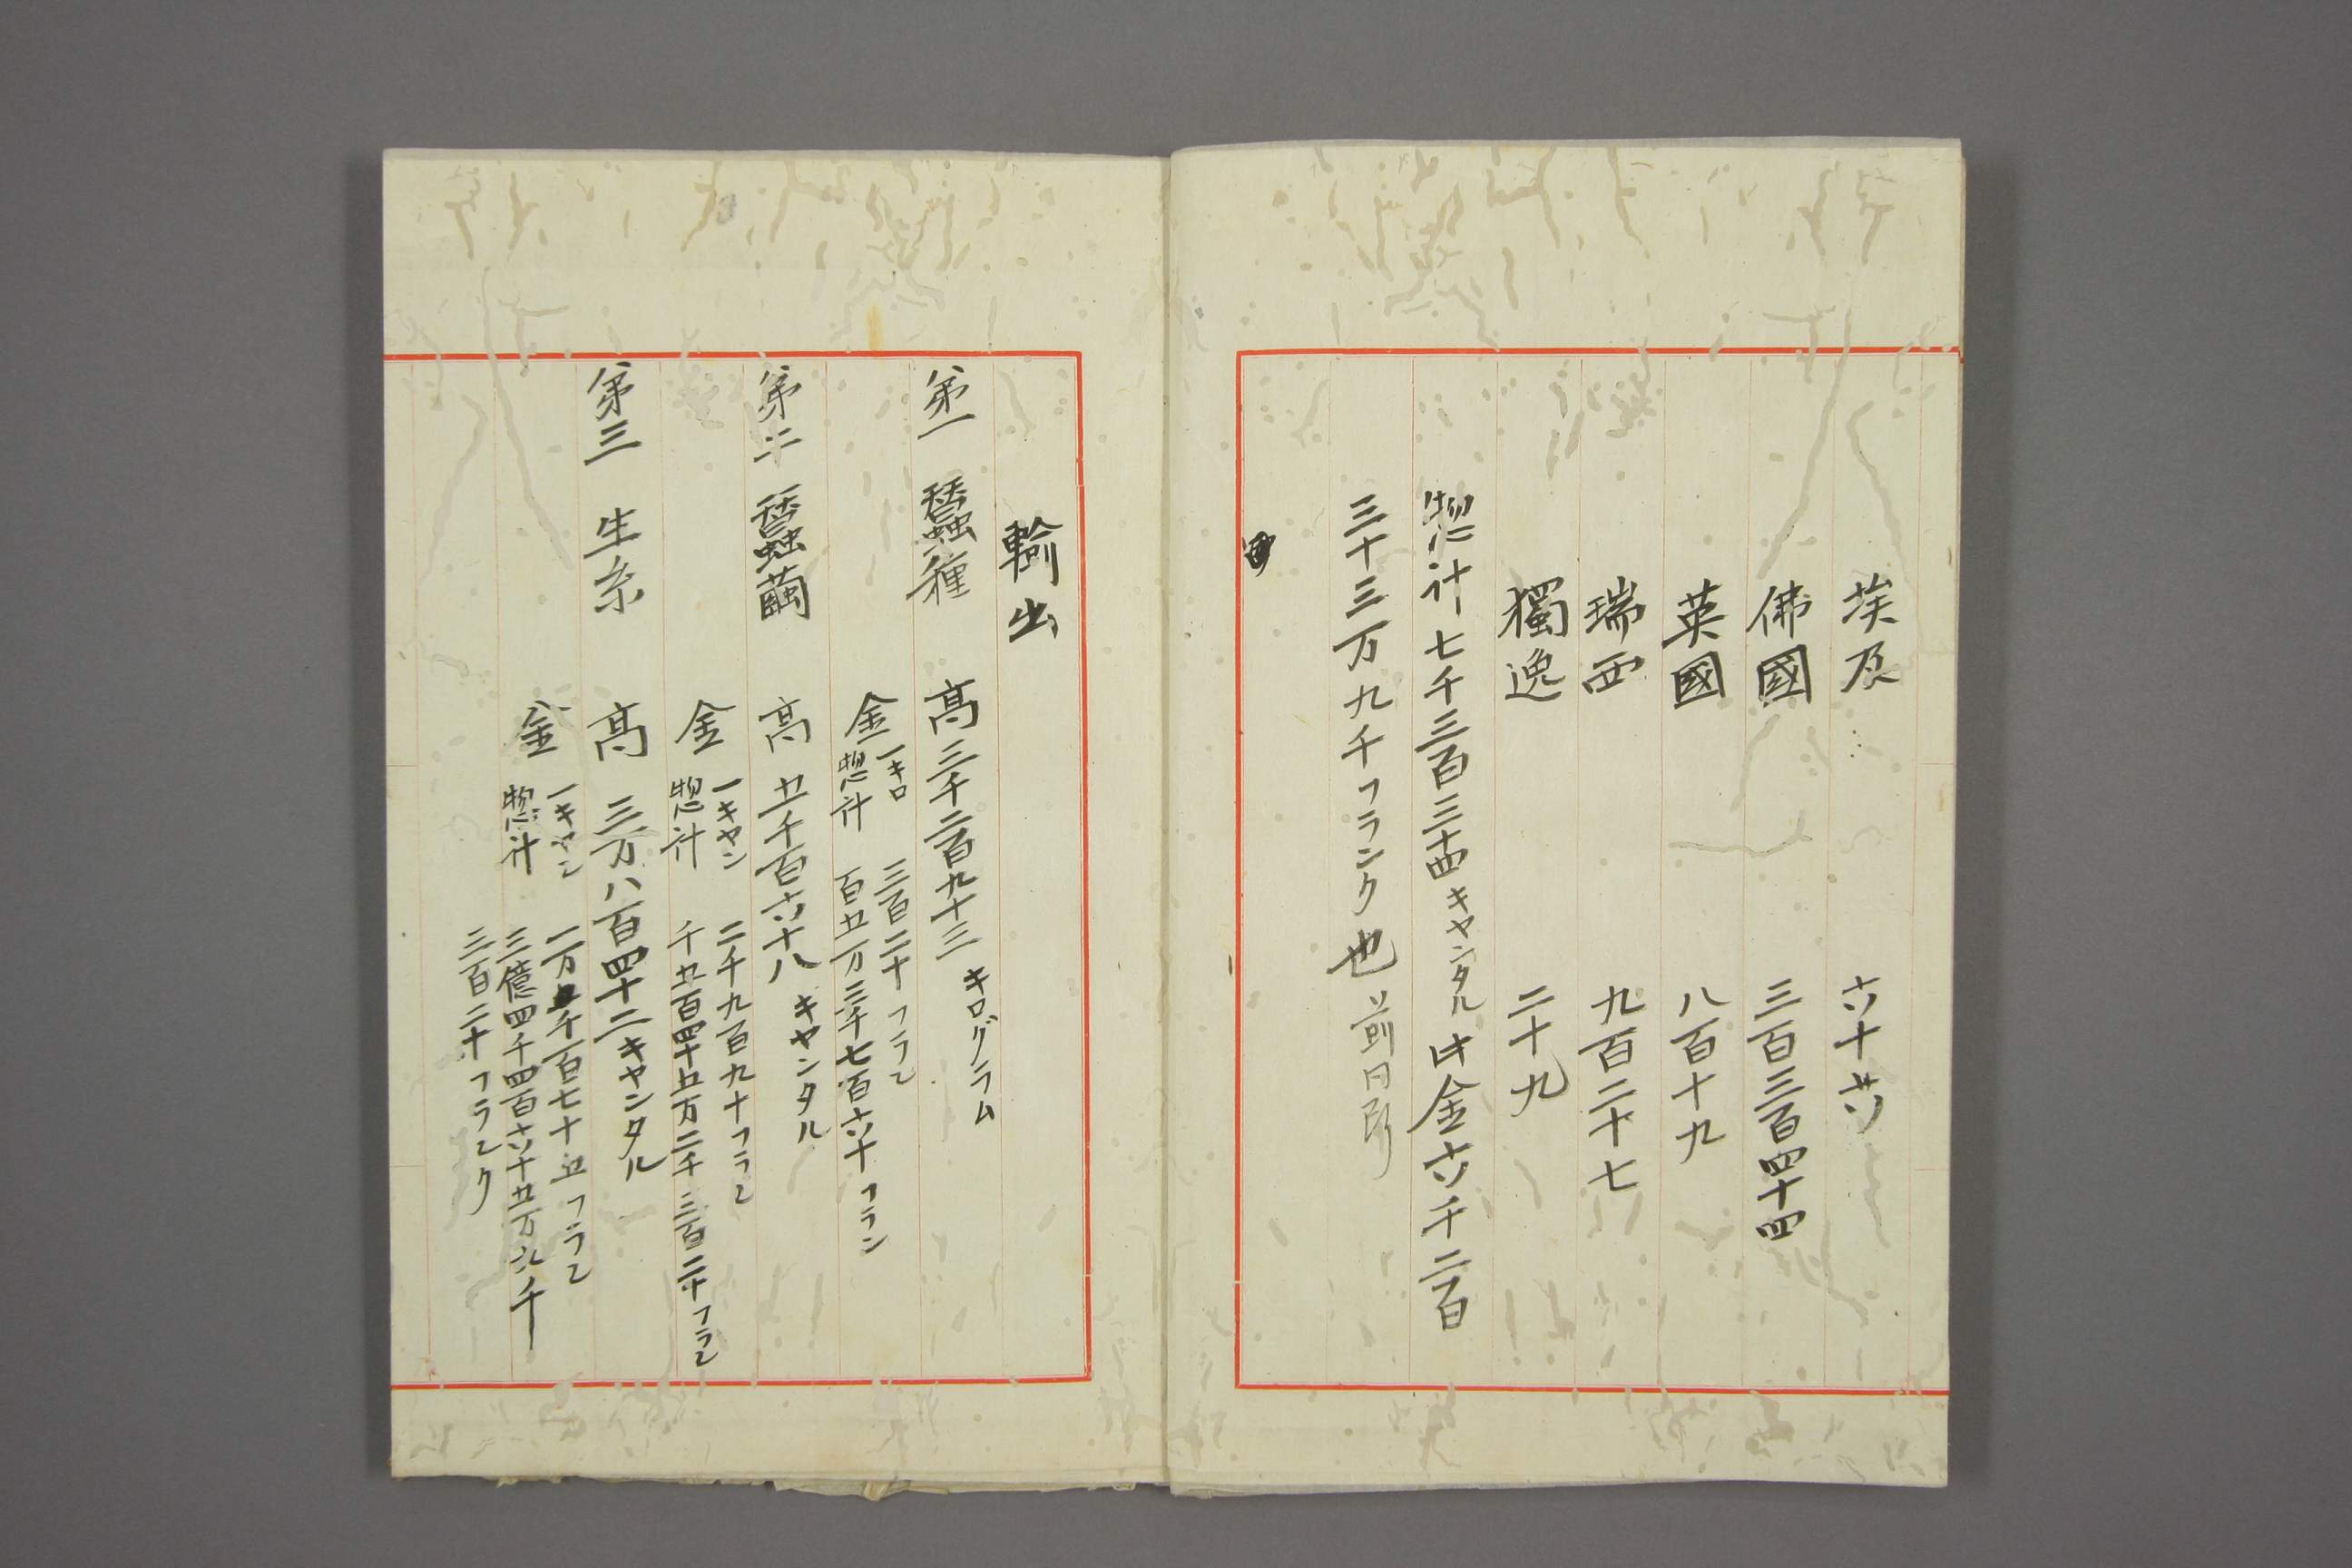 埃及 六十六
佛國 三百三百四十四
英國 八百十九
瑞西 九百二十七
獨逸 二十九
惣計七千三百三十四キヤンタル 此金六千二百
三十三万九千フランク也
輸出
第一 蠶種 高 三千二百九十三 キログラム
金 一キロ 三百二十フラン
惣計 百五万三千七百六十フラン
第二 蠶繭 高 五千百六十八 キヤンタル
金 一キヤン 二千九百九十フラン
惣計 千五百四十五万二千三百二十フラン
第三 生糸 高 三万八百四十二キヤンタル
金 一キヤン 一万千百七十五フラン
惣計 三億四千四百六十五万九千
三百二十フランク